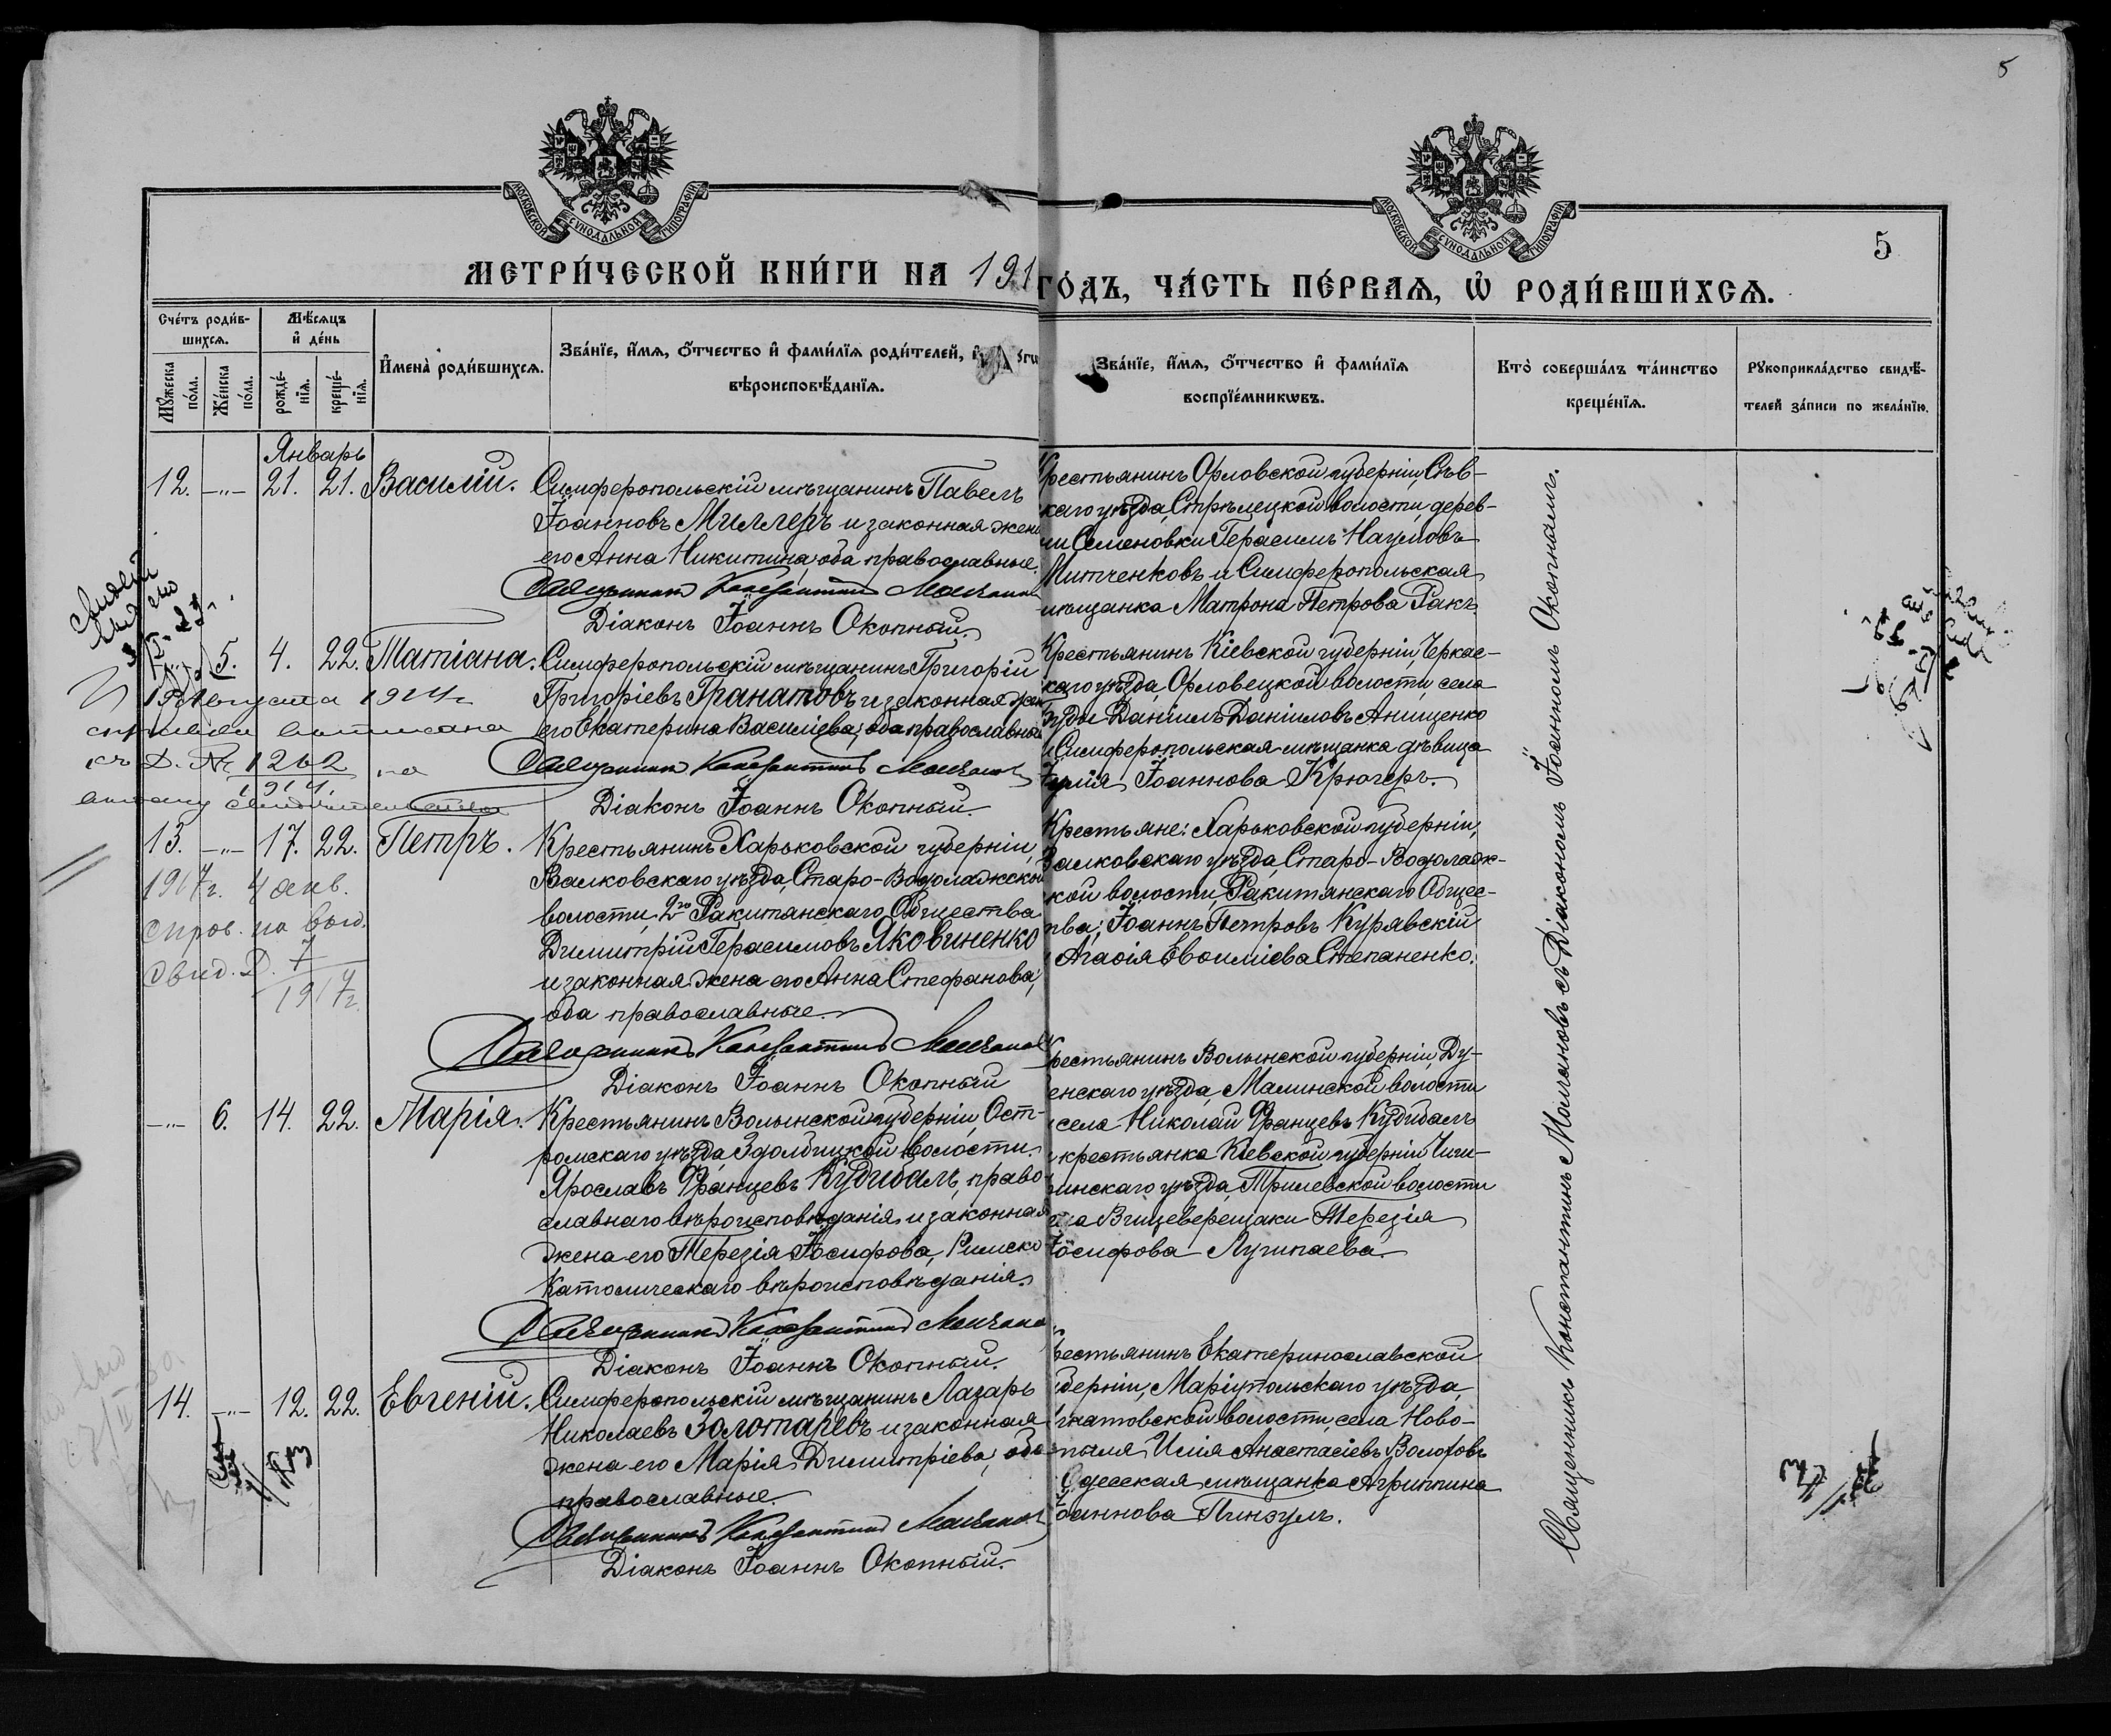 5
МОСКОВСКОЙ СѴНОДАЛЬНОЙ ТИПОГРАФІИ
МОСКОВСКОЙ СѴНОДАЛЬНОЙ ТИПОГРАФІИ
5
МЕТРИ́ЧЕСКОЙ КНИ́ГИ НА 191
ГО́ДЪ, ЧА́СТЬ ПЕ́РВАѦ, Ѡ҆ РОДИ́ВШИХСѦ.
Сче́тъ роди́в-
шихсѧ.
Мꙋ́жеска по́ла.
Же́нска по́ла.
Мѣ́сѧцъ
и҆ де́нь
рожде́-
нїѧ.
креще́-
нїѧ.
И҆мена̀ роди́вшихсѧ.
Зва́нїе, и҆́мѧ, ѻ҆́тчество и҆ фами́лїѧ роди́телей,
вѣроисповѣ́данїѧ.
Зва́нїе, и҆́мѧ, ѻ҆́тчество и҆ фами́лїѧ
воспрїе́мникѡвъ.
Кто̀ соверша́лъ та́инство
креще́нїѧ.
Рꙋкоприкла́дство свидѣ́-
телей за́писи по жела́нїю.
Январь
12. -"- 21. 21. Василій.
Симферопольскій мѣщанинъ Павелъ
Іоанновъ Миллеръ и законная жена
его Анна Никитина; оба православные.
Священникъ Константинъ Молчановъ
Діаконъ Іоаннъ Окопный.
Крестьянинъ Орловской губерніи Сѣв-
скаго уѣзда, Стрѣлецкой волости, дерев-
ни Семеновки Герасимъ Наумовъ
Митченковъ и Симферопольская
мѣщанка Матрона Петрова Ракъ.
-"- 5. 4. 22. Татіана.
Симферопольскій мѣщанинъ Григорій
Григоріевъ Гранатовъ и законная жена
его Екатерина Василіева; оба православные
Священникъ Константинъ Молчановъ
Діаконъ Іоаннъ Окопный.
Крестьянинъ Кіевской губерніи, Черкас-
каго уѣзда, Орловецкой волости, села
Даніилъ Даніиловъ Анищенко
и Симферопольская мѣщанка дѣвица
Іоаннова Крюгеръ.
Августа 1914г
къ Д. № 1262
1914.
13. -"- 17. 22. Петръ.
Крестьянинъ Харьковской губерніи,
Валковскаго уѣзда, Старо-Водолажской
волости, 2го Ракитянскаго Общества
Димитрій Герасимовъ Яковиненко
и законная жена его Анна Стефанова;
оба православные.
Священникъ Константинъ Молчановъ
Діаконъ Іоаннъ Окопный
Крестьяне: Харьковской губерніи,
Валковскаго уѣзда, Старо-Водолаж-
ской волости, Ракитянскаго Общес-
тва; Іоаннъ Петровъ Курявскій
Агаѳія Евѳиміева Степаненко.
1917г. 4 янв.
спров. на выд.
свид. Д. 7
1917г.
-"- 6. 14. 22. Марія.
Крестьянинъ Волынской губерніи, Ост-
рожскаго уѣзда, Здолбицкой волости,
Ярославъ Францевъ Кудибалъ, право-
славнаго вѣроисповѣданія и законная
жена его Терезія Іосифова, Римско
Католическаго вѣроисповѣданія.
Священникъ Константинъ Молчановъ
Діаконъ Іоаннъ Окопный.
Крестьянинъ Волынской губерніи, Ду-
бенскаго уѣзда, Малинской волости
села Николай Францевъ Кудибалъ
и крестьянка Кіевской губерніи Чиги-
ринскаго уѣзда, Трилевской волости
села Вищеверещаки Терезія
Іосифова Лугипаева.
14. -"- 12. 22. Евгеній.
Симферопольскій мѣщанинъ Лазарь
Николаевъ Золотаревъ и законная
жена его Марія Димитріева; оба
православные.
Священникъ Константинъ Молчановъ
Діаконъ Іоаннъ Окопный.
Крестьянинъ Екатеринославской
губерніи, Маріупольскаго уѣзда,
Игнатовской волости, села Ново-
Илія Анастасіевъ Волоховъ
Одесская мѣщанка Агриппина
Іоаннова Пинзулъ.
Священникъ Константинъ Молчановъ съ Діакономъ Іоанномъ Окопнымъ.